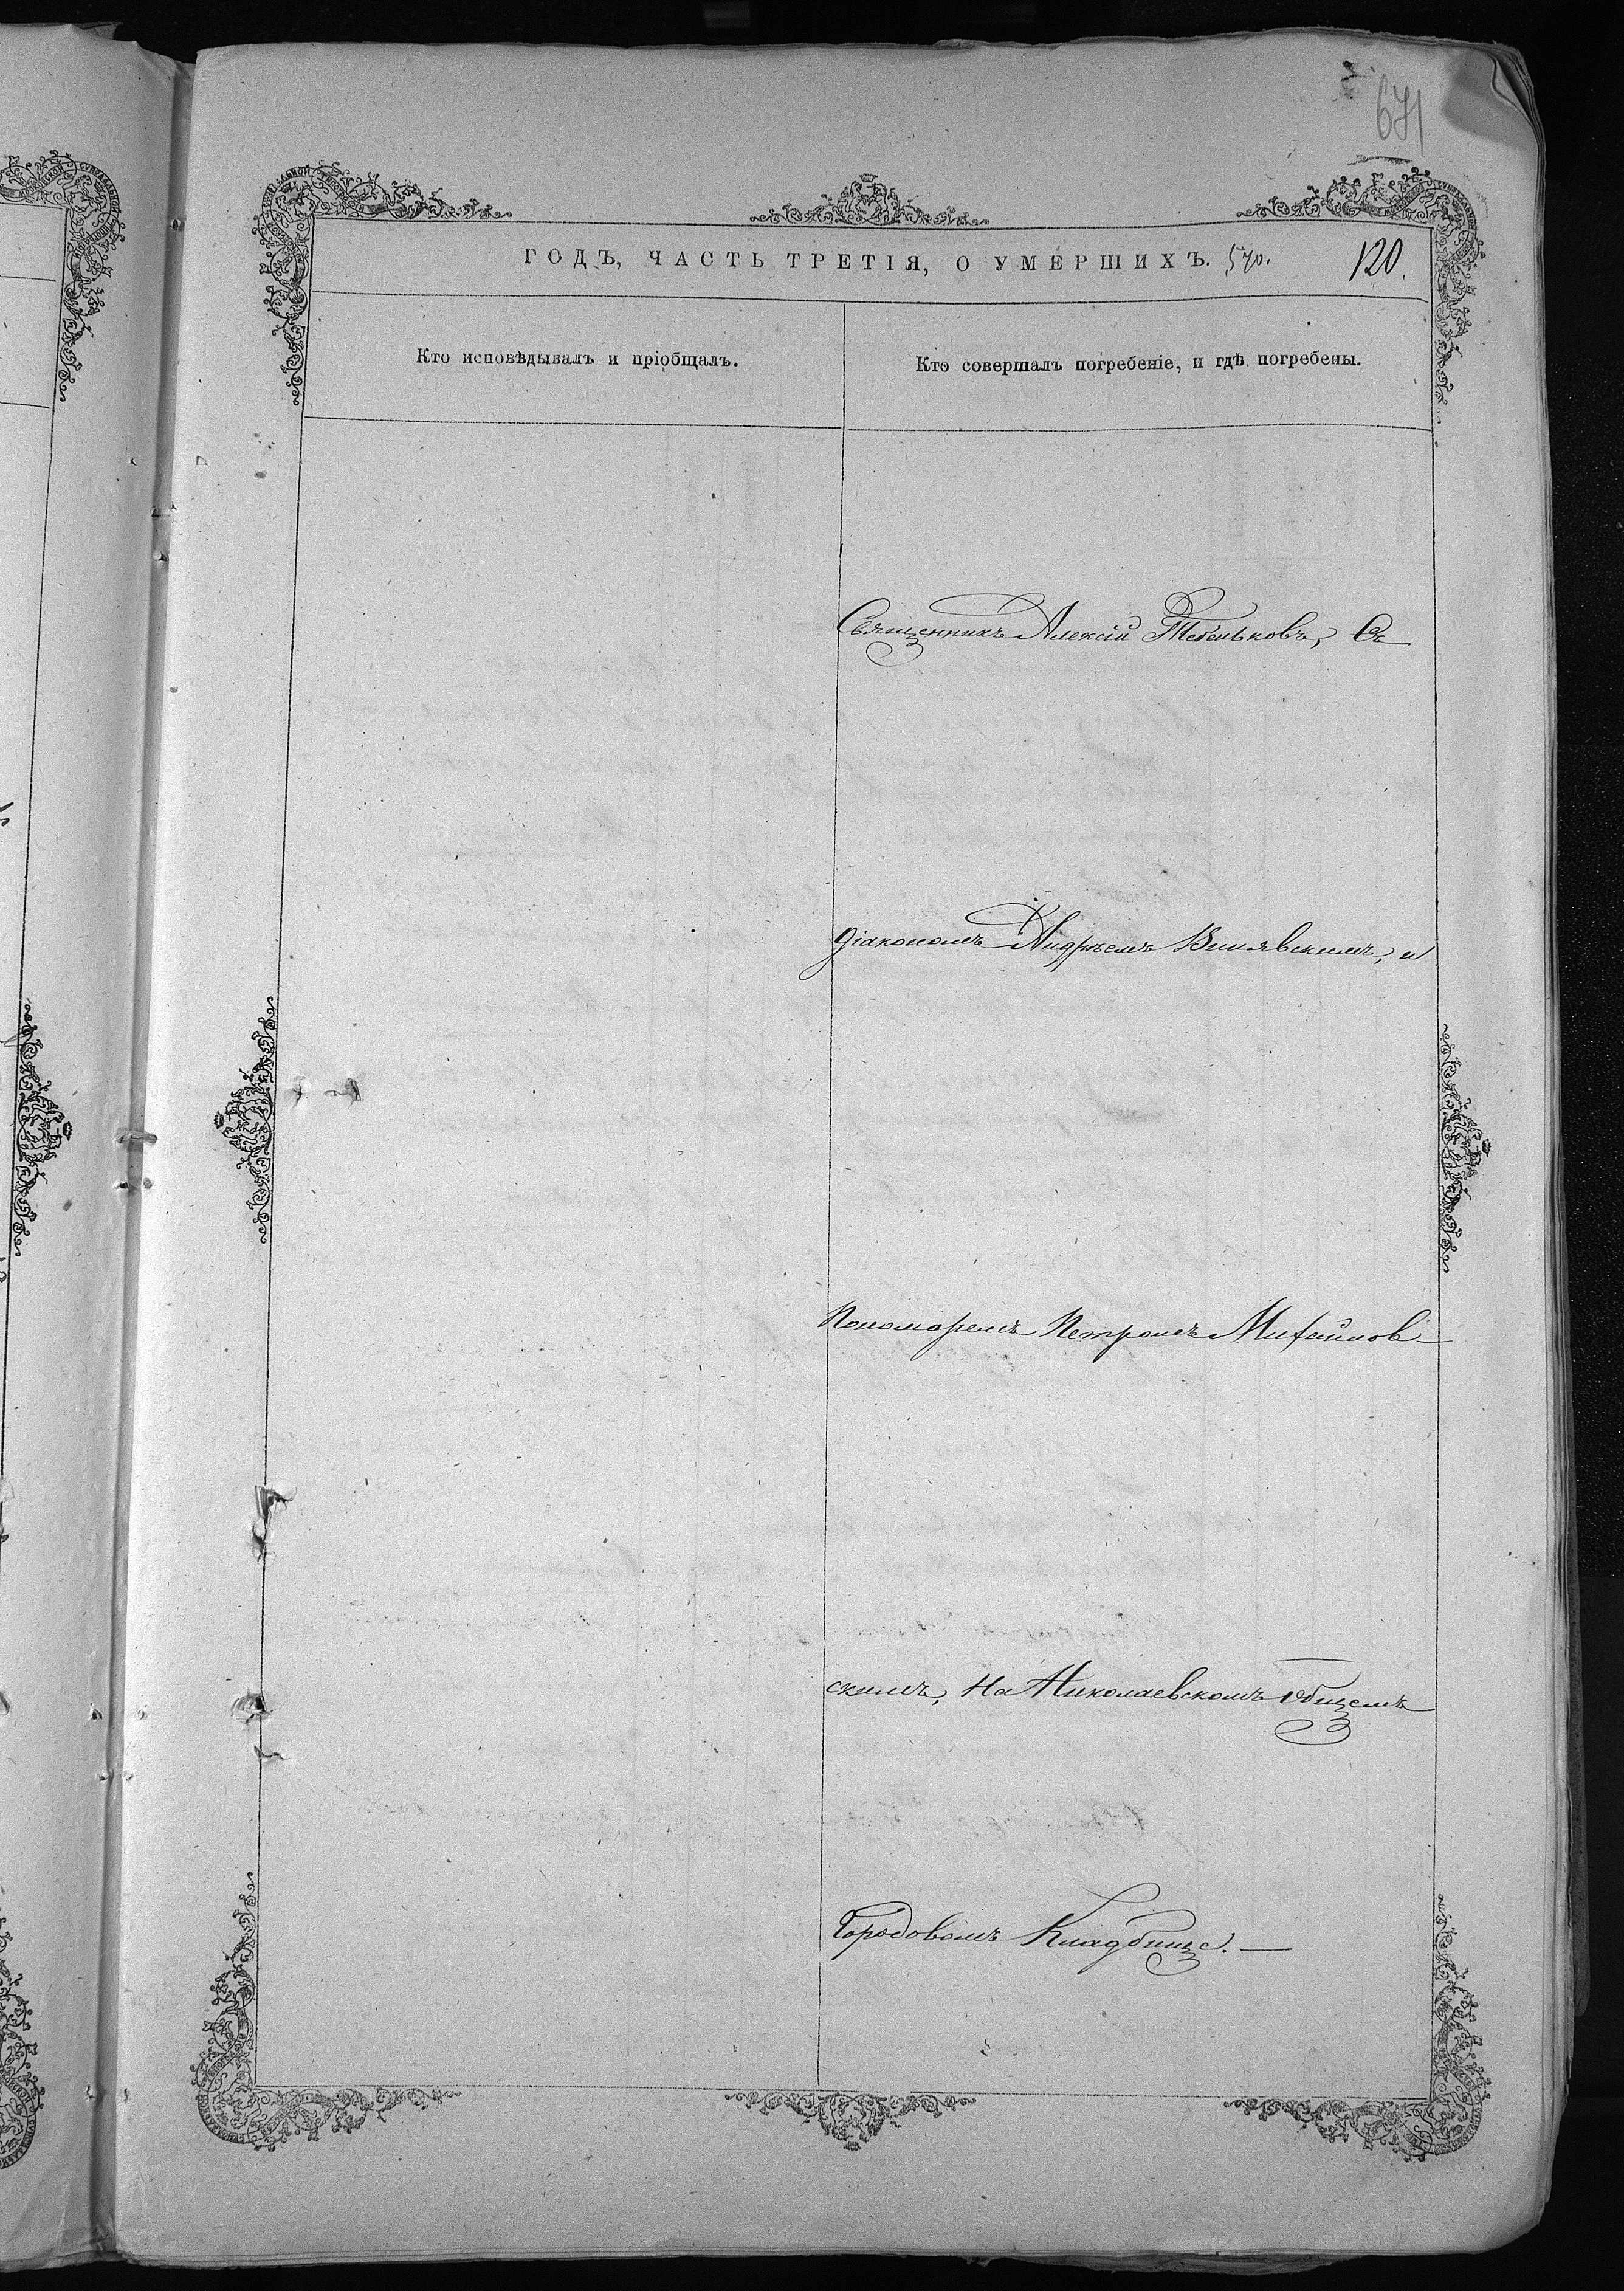 671
ГОДЪ, ЧАСТЬ ТРЕТІЯ, О УМЕРШИХЪ. 570. 120.
Кто исповѣдывалъ и пріобщалъ.
Кто совершалъ погребеніе, и гдѣ погребены.
Священникъ Алексій Тебеньковъ, Съ
діакономъ Андреемъ Вишявскимъ, и
Пономаремъ Петромъ Михайлов-
скимъ, На Николаевскомъ общемъ
Городовомъ Кладбище. —